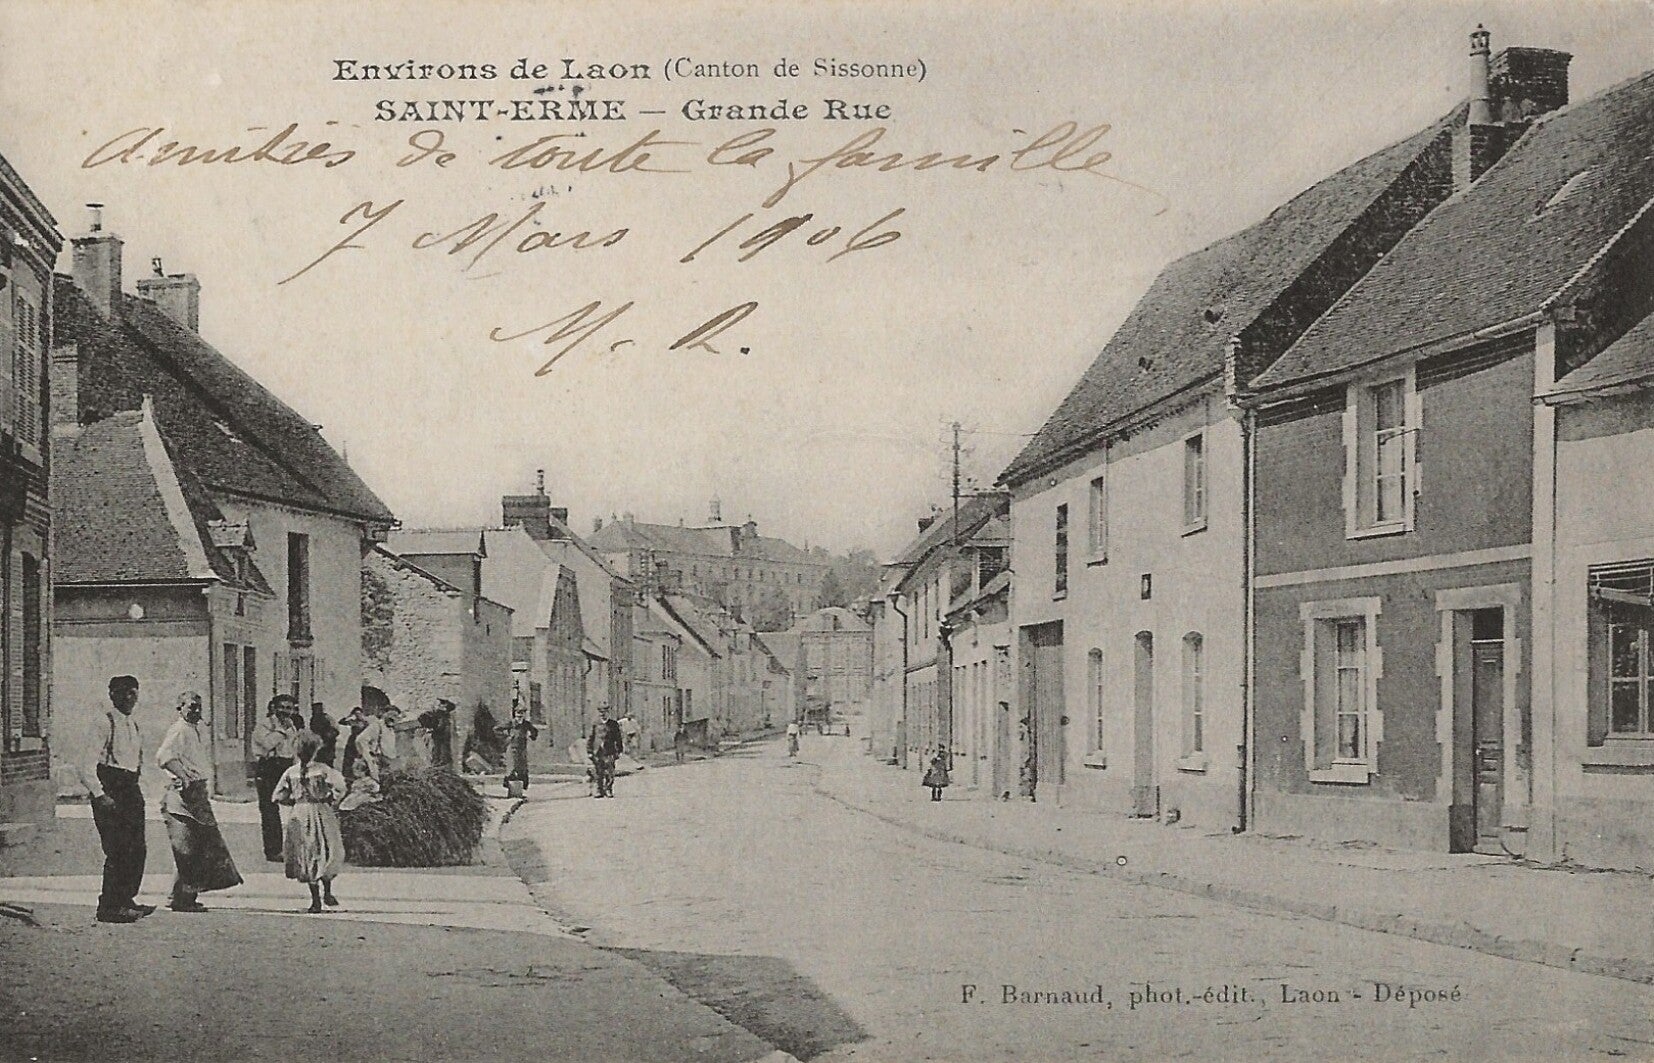 Environs de Laon (Canton de Sissonne)
SAINT-ERME — Grande Rue
Amitiés de toute la famille
7 Mars 1906
M. R.
F. Barnaud, phot.-édit., Laon - Déposé